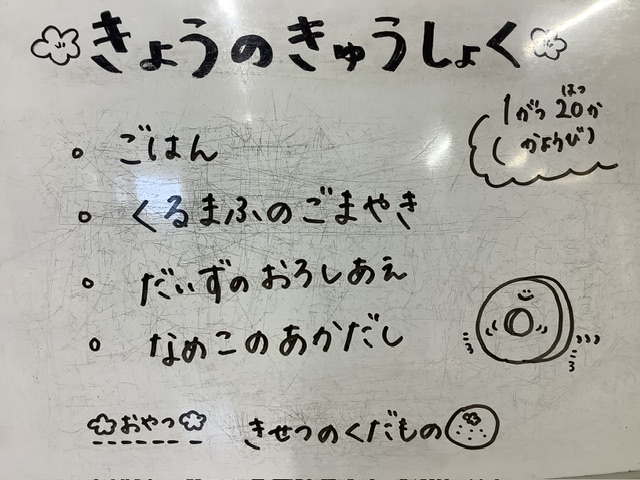 きょうのきゅうしょく
1がつ20か
はつ
(かようび)
ごはん
くるまふのごまやき
だいずのおろしあえ
なめこのあかだし
おやつ きせつのくだもの